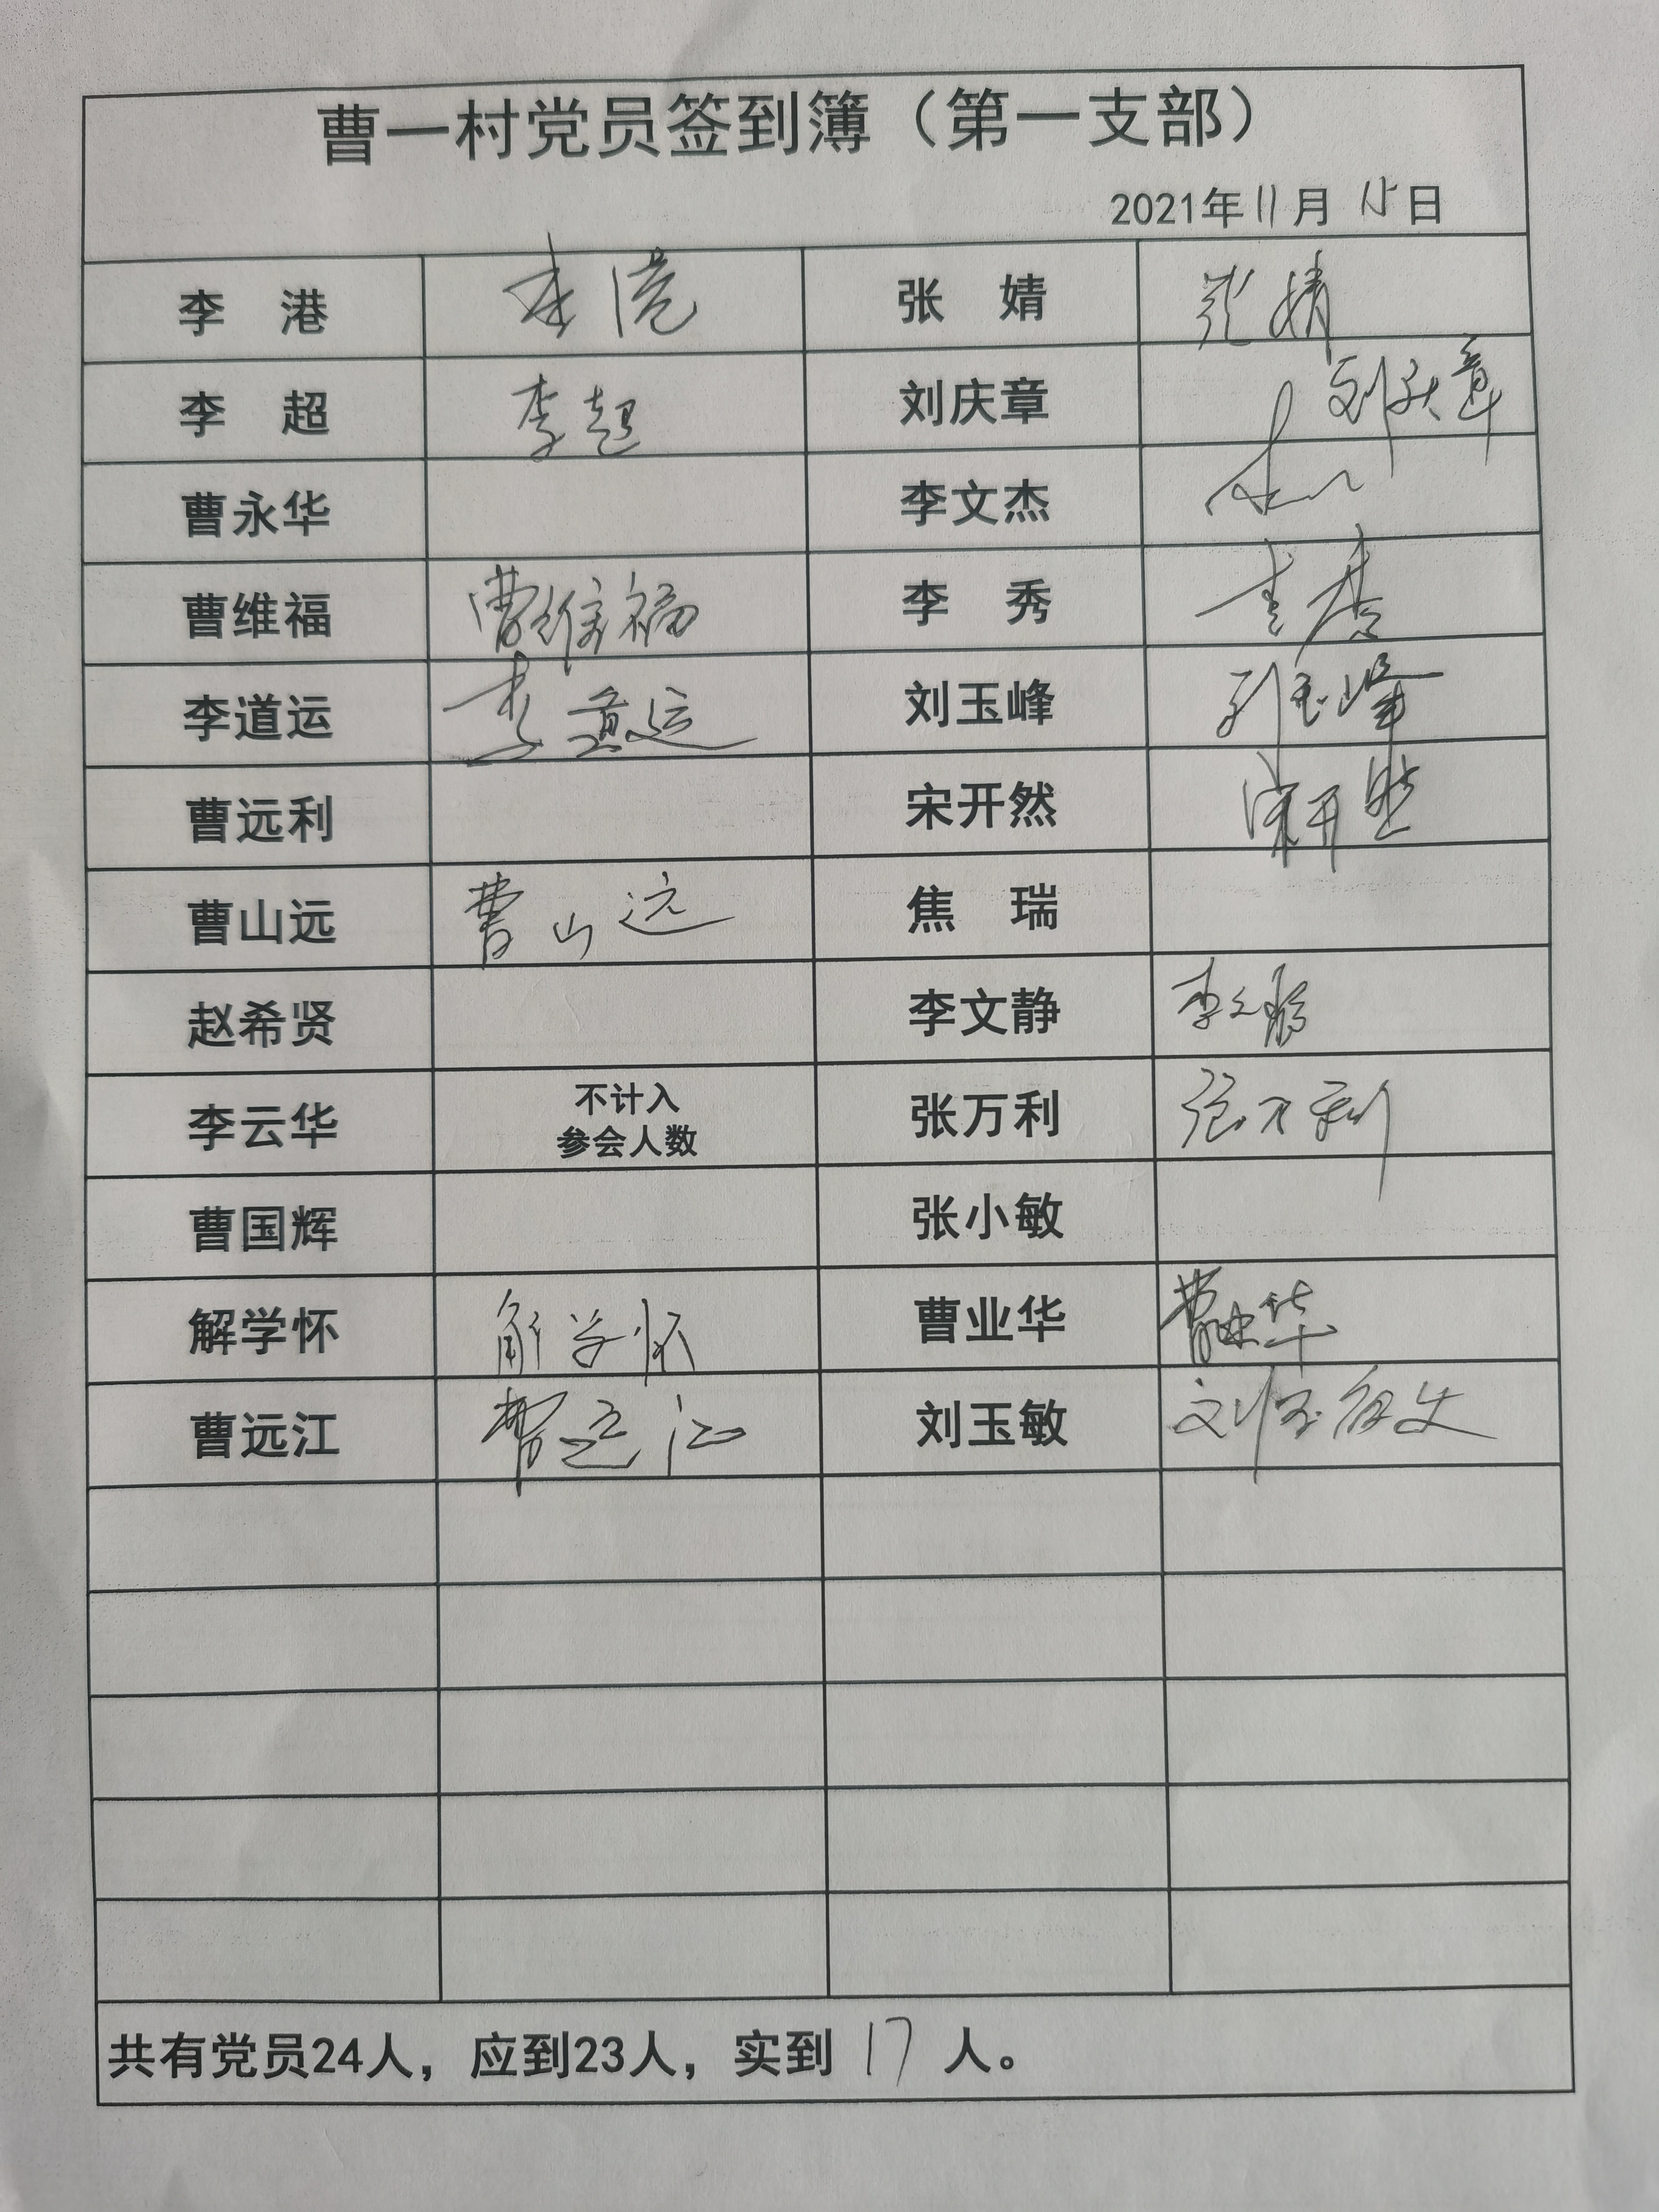 曹一村党员签到簿（第一支部）
2021年11月15日
李 港 李港 张 婧 张婧
李 超 李超 刘庆章 刘庆章
曹永华 李文杰
曹维福 曹维福 李 秀 李秀
李道运 李道运 刘玉峰 刘玉峰
曹远利 宋开然 宋开然
曹山远 曹山远 焦 瑞
赵希贤 李文静 李文静
李云华 不计入 张万利 张万利
参会人数
曹国辉 张小敏
解学怀 解学怀 曹业华 曹业华
曹远江 曹远江 刘玉敏 刘玉敏
共有党员24人，应到23人，实到 17 人。